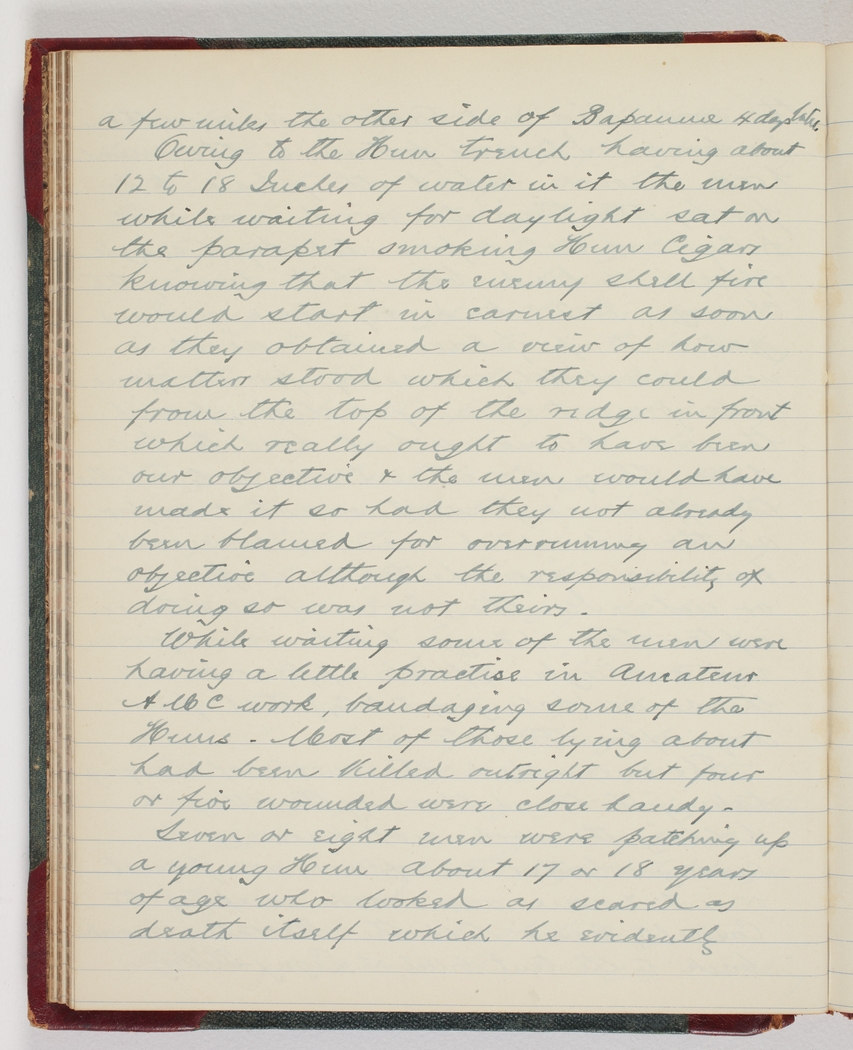 a few miles the other side of Bapaume 4 days later.
Owing to the Hun trench having about
12 to 18 Inches of water in it the men
while waiting for daylight sat on
the parapet smoking Hun Cigars
knowing that the enemy shell fire
would start in earnest as soon
as they obtained a view of how
matters stood which they could
from the top of the ridge in front
which really ought to have been
our objective & the men would have
made it so had they not already
been blamed for overrunning an
objective although the responsibility of
doing so was not theirs.
While waiting some of the men were
having a little practise in Amateur
A M C work, bandaging some of the
Huns - Most of those lying about
had been killed outright but four
or five wounded were close handy -
Seven or eight men were patching up
a young Hun about 17 or 18 years
of age who looked as scared as
death itself which he evidently